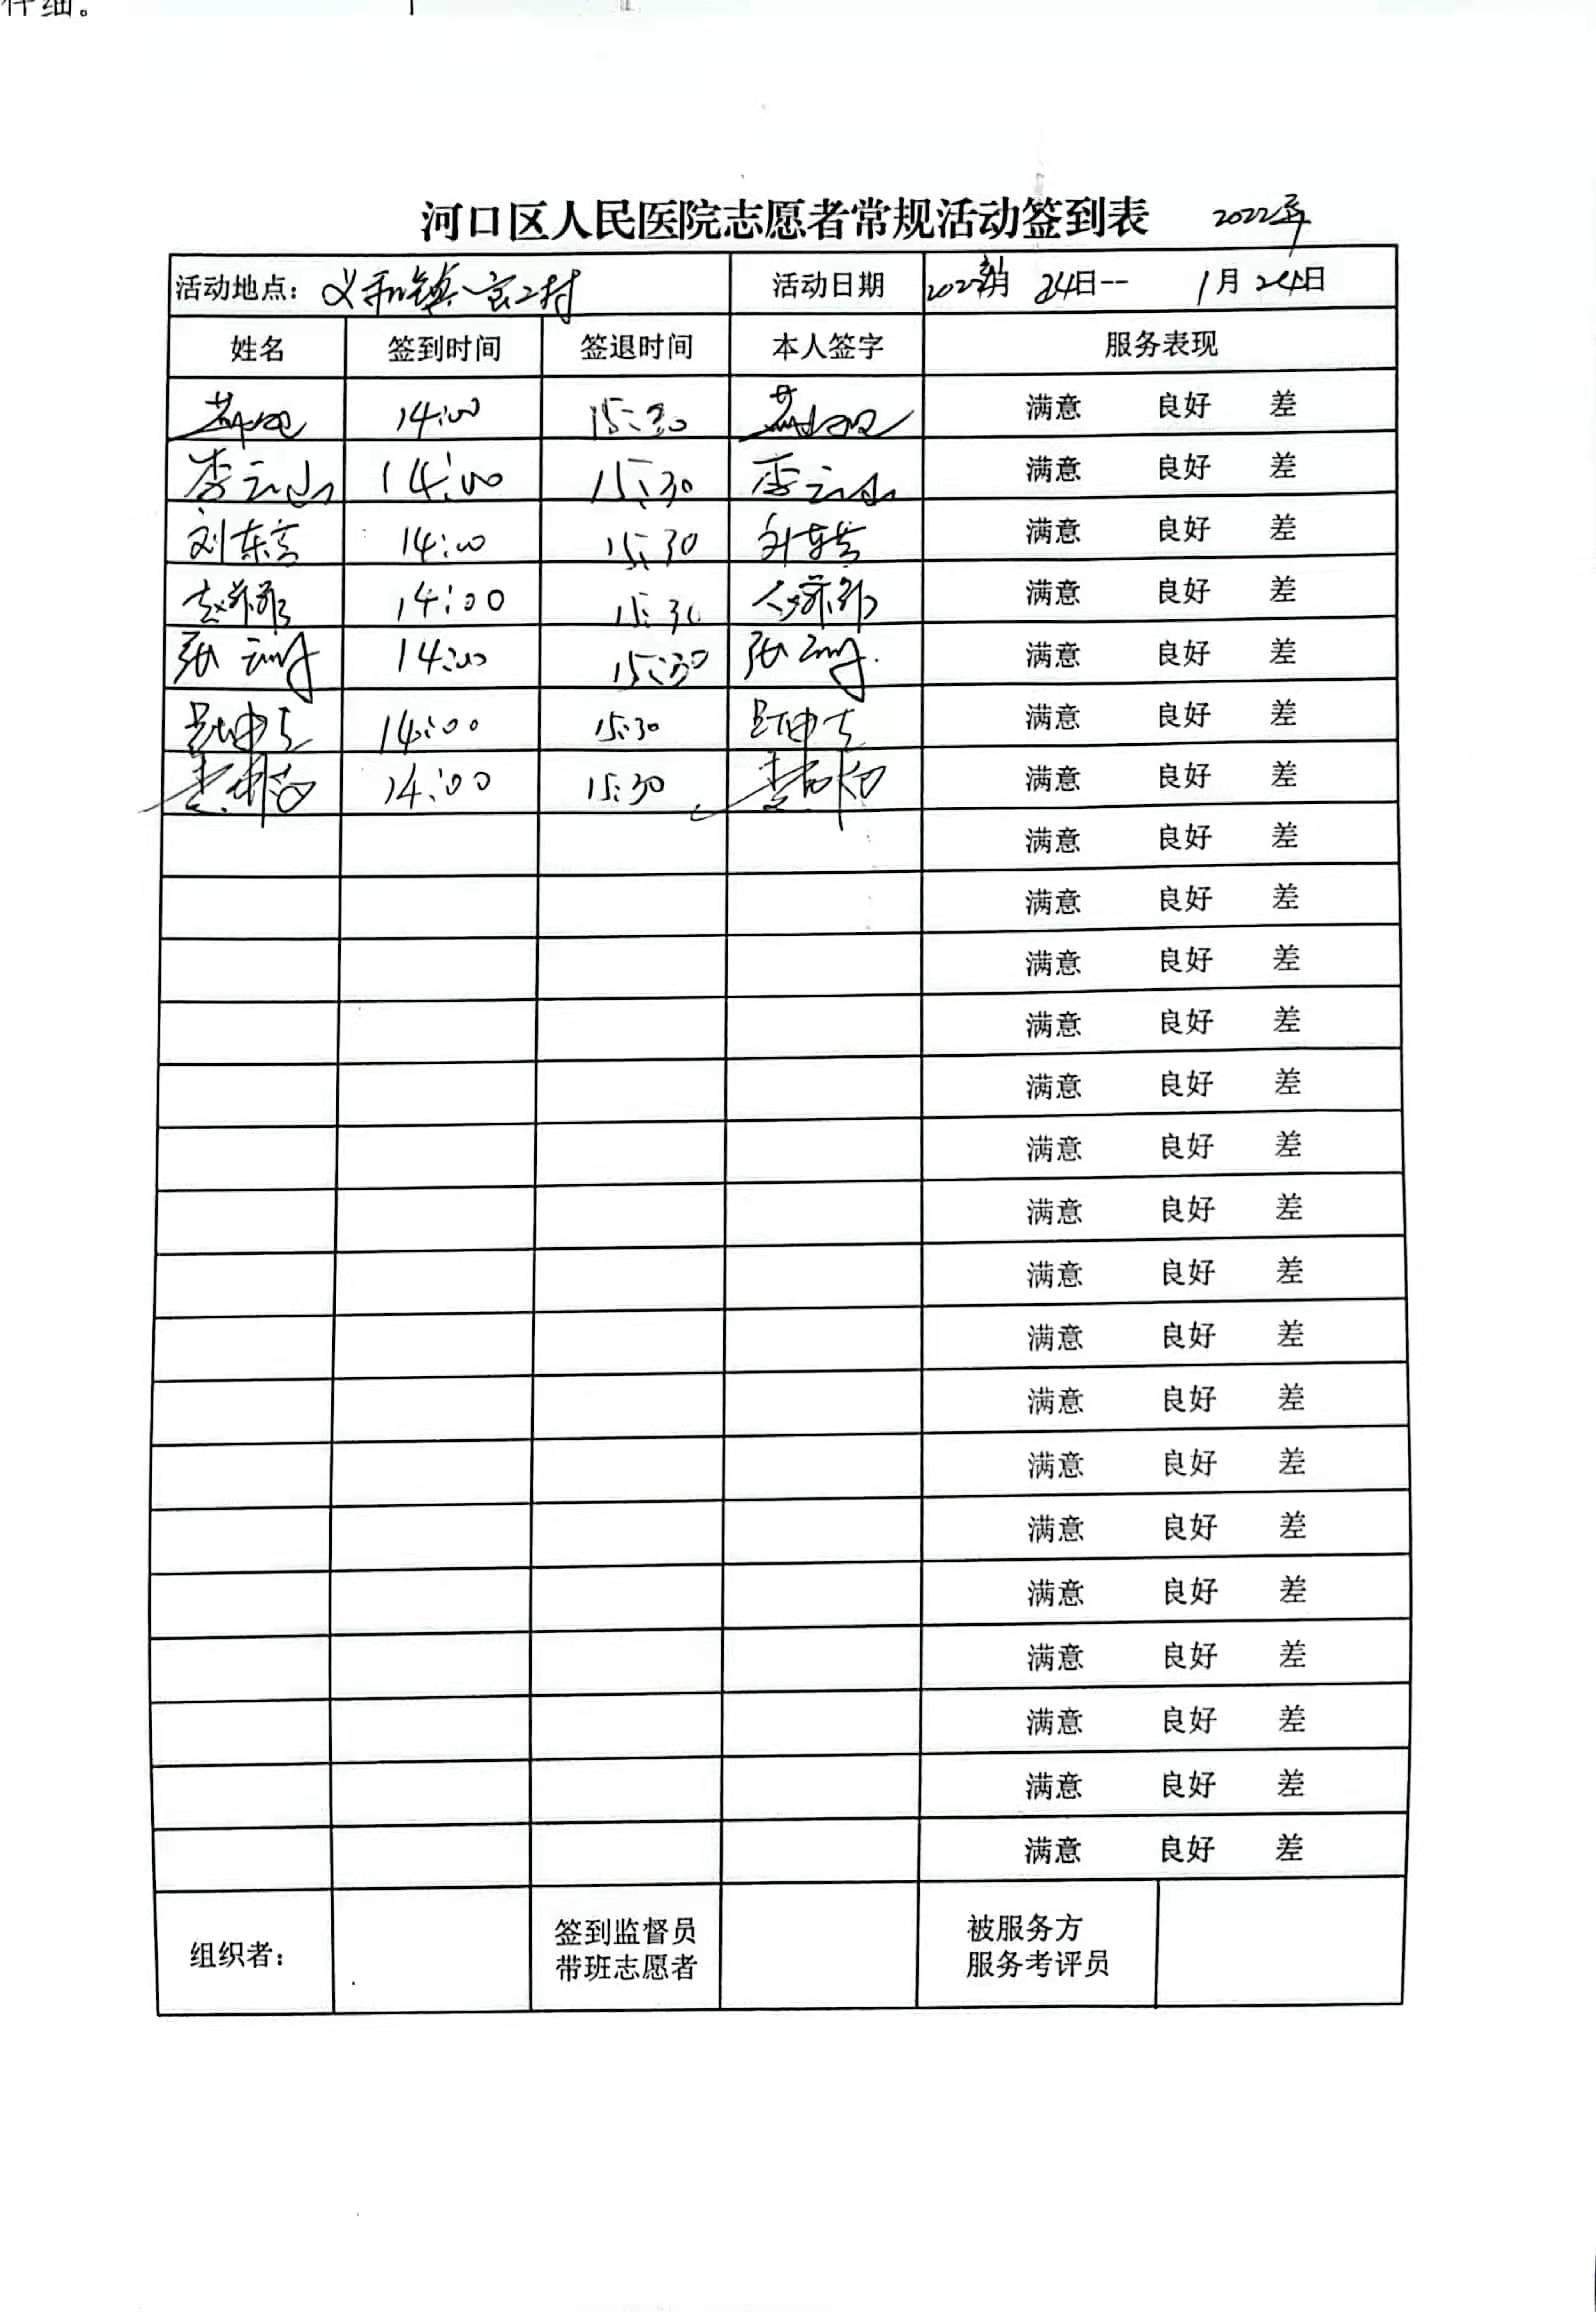 仔细。
河口区人民医院志愿者常规活动签到表 2022年
活动地点： 义和镇 村 活动日期 2022年1月 24日-- 1月24日
姓名 签到时间 签退时间 本人签字 服务表现
14:00 15:30 满意 良好 差
李云山 14:00 15:30 李云山 满意 良好 差
刘东 14:00 15:30 刘东 满意 良好 差
赵 14:00 15:30 赵 满意 良好 差
张 14:00 15:30 张 满意 良好 差
14:00 15:30 满意 良好 差
李 14:00 15:30 李 满意 良好 差
满意 良好 差
满意 良好 差
满意 良好 差
满意 良好 差
满意 良好 差
满意 良好 差
满意 良好 差
满意 良好 差
满意 良好 差
满意 良好 差
满意 良好 差
满意 良好 差
满意 良好 差
满意 良好 差
满意 良好 差
满意 良好 差
满意 良好 差
组织者： 签到监督员 被服务方
带班志愿者 服务考评员